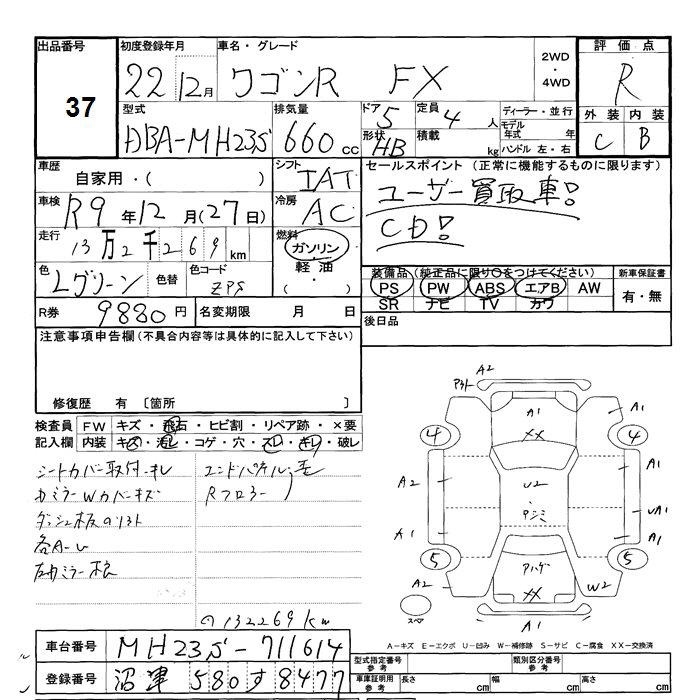 出品番号
37
初度登録年月
22 12月
車名・グレード
ワゴンR FX
2WD
・
4WD
評価点
R
外装 内装
C B
型式
DBA-MH23S
排気量
660 cc
ドア 5
形状 HB
定員 4 人
積載 kg
ディーラー・並行
モデル
年式 年
ハンドル 左・右
車歴
自家用・( )
シフト
IAT
車検
R9年12月(27日)
冷房
AC
走行
13万2千269km
燃料
ガソリン
・
軽油
( ・ )
色
Lグリーン
色替
色コード
ZPS
R券 9880円
名変期限 月 日
セールスポイント (正常に機能するものに限ります)
ユーザー買取車!
CD!
装備品 (純正品に限り○をつけてください)
PS PW ABS エアB AW
SR ナビ TV カワ
新車保証書
有・無
後日品
注意事項申告欄(不具合内容等は具体的に記入して下さい)
修復歴 有 〔箇所 〕
検査員 FW キズ・飛石・ヒビ割・リペア跡・×要
記入欄 内装 キズ・汚レ・コゲ・穴・スレ・キレ・破レ
シートカバー取付キレ
カミラーWカバーキズ
ダッシュ板のリフト
各A-U
エンドパネル
Rフロアー
132269km
車台番号 MH23S-711614
登録番号 沼津 580 す 8477
A2
アタト
A1
XX
4
4
A1
A2
A1
U2
アンミ
A1
UA1
A1
5
5
アハゲ
XX
A2
W2
A1
スペア
A-キズ E-エクボ U-凹み W-補修跡 S-サビ C-腐食 XX-交換済
型式指定番号
参考
類別区分番号
参考
車庫証明用
参考
長さ cm 幅 cm 高さ cm